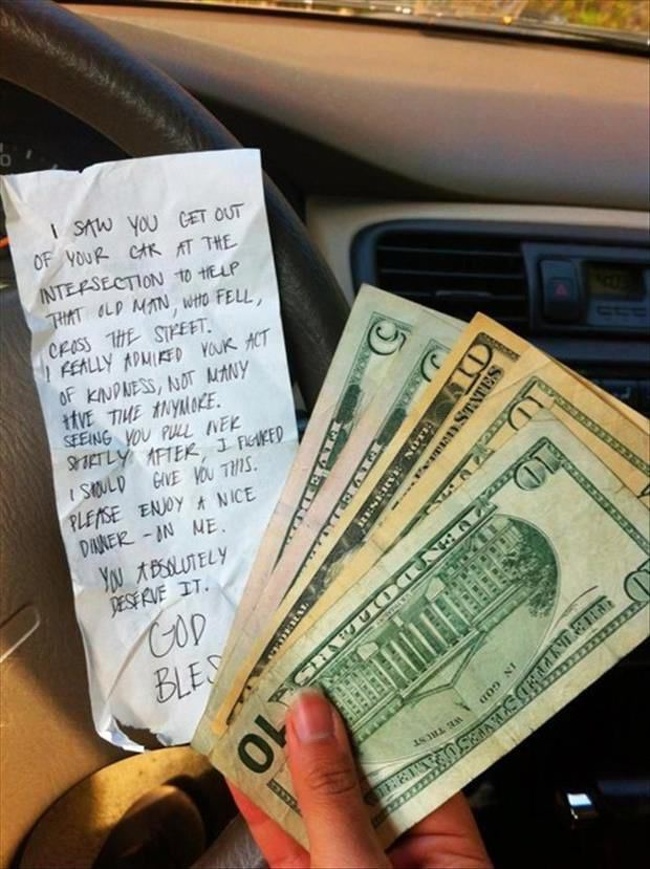 I SAW YOU GET OUT
OF YOUR CAR AT THE
INTERSECTION TO HELP
THAT OLD MAN, WHO FELL,
CROSS THE STREET.
I REALLY ADMIRED YOUR ACT
OF KINDNESS, NOT MANY
HAVE TIME ANYMORE.
SEEING YOU PULL OVER
SHORTLY AFTER, I FIGURED
I SHOULD GIVE YOU THIS.
PLEASE ENJOY A NICE
DINNER - ON ME.
YOU ABSOLUTELY
DESERVE IT.
GOD
BLES
10
FEDERAL RESERVE NOTE
IN GOD
WE TRUST
10